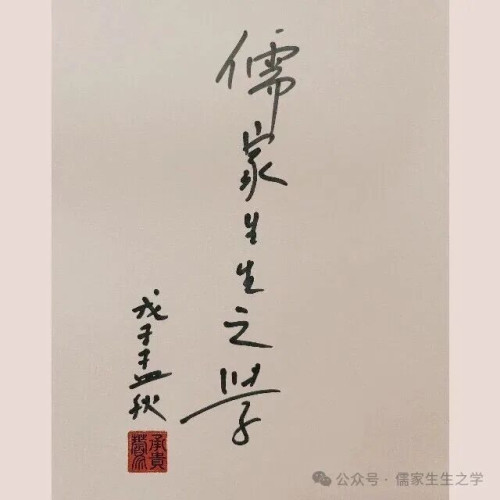 儒家生生之學
戊子孟秋
承貴
公众号 · 儒家生生之学